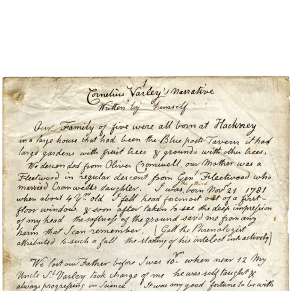 Cornelius Varley's Narrative
Written by himself
Our Family of five were all born at Hackney
in a large house that had been the Blue post Tavern it had
large gardens with great trees & grounds with other trees.
We descended from Oliver Cromwell our Mother was a
Fleetwood in regular descent from Genl Fleetwood who
married Cromwells daughter. I was born Nov 21 1781
when about 4 yrs old I fell facmost out of a first
floor window & soon after taken to see the deep impression
of my head the softness of the ground saved me from any
harm that I can remember. (Gall the Phrenologist
attributed to such a fall the stating of his intelect into activity)
We lost our Father before I was 10 when near 12 My
Uncle Sl Varley took charge of me he was self taught &
always progressing in Science It was my good fortune to be with